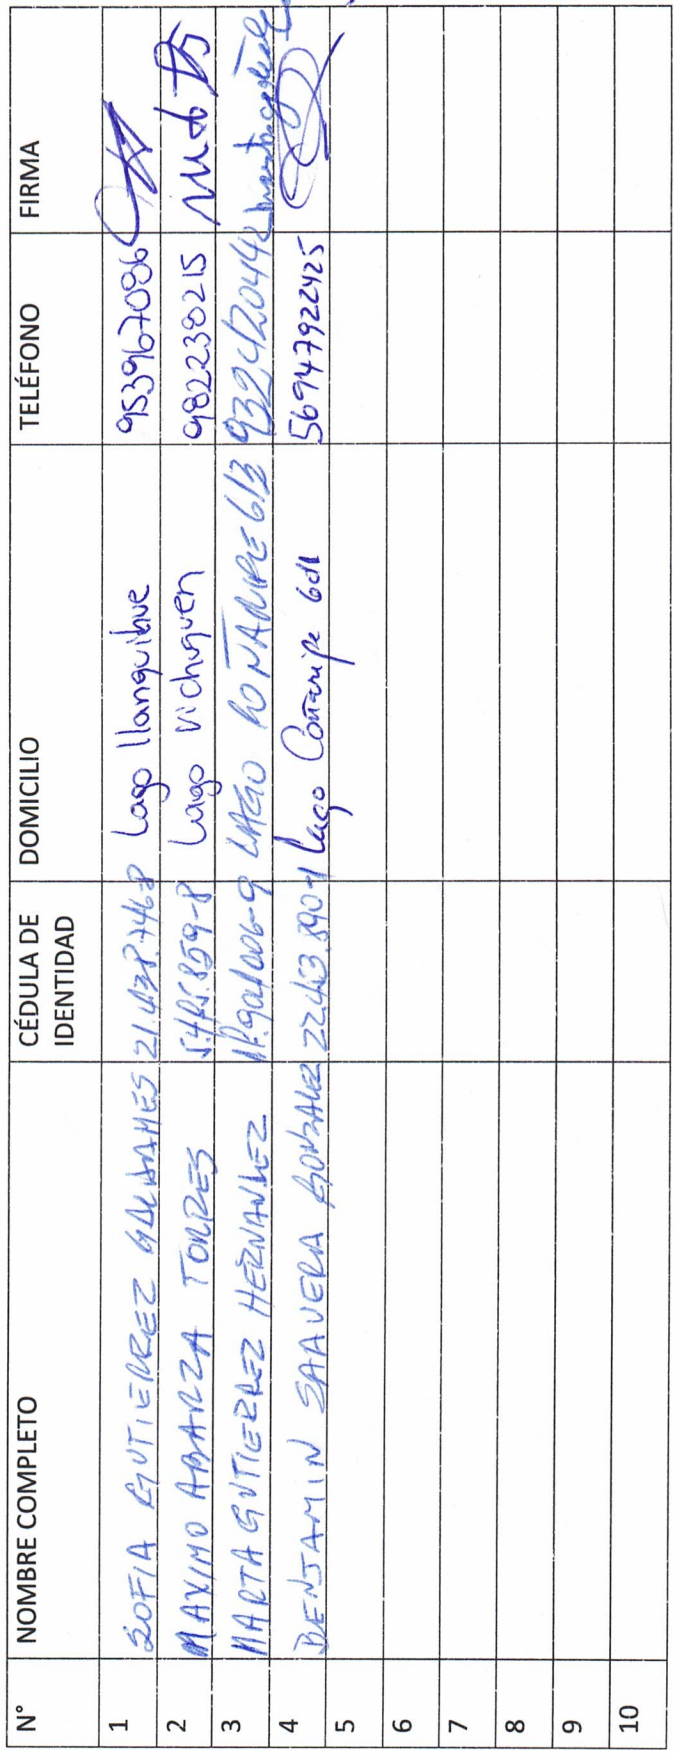 N° NOMBRE COMPLETO CÉDULA DE IDENTIDAD DOMICILIO TELÉFONO FIRMA
1 SOFIA GUTIERREZ GALDAMES 21.438.746-8 Lago llanquihue 953967086
2 MAXIMO ABARZA TORRES 5.415.859-8 Lago Vichuquen 982238215
3 MARTA GUTIERREZ HERNANDEZ LAGO 613 932420442
4 BENJAMIN SAAVERA GONZALEZ Lago Coñaripe 601 56947922425
5
6
7
8
9
10